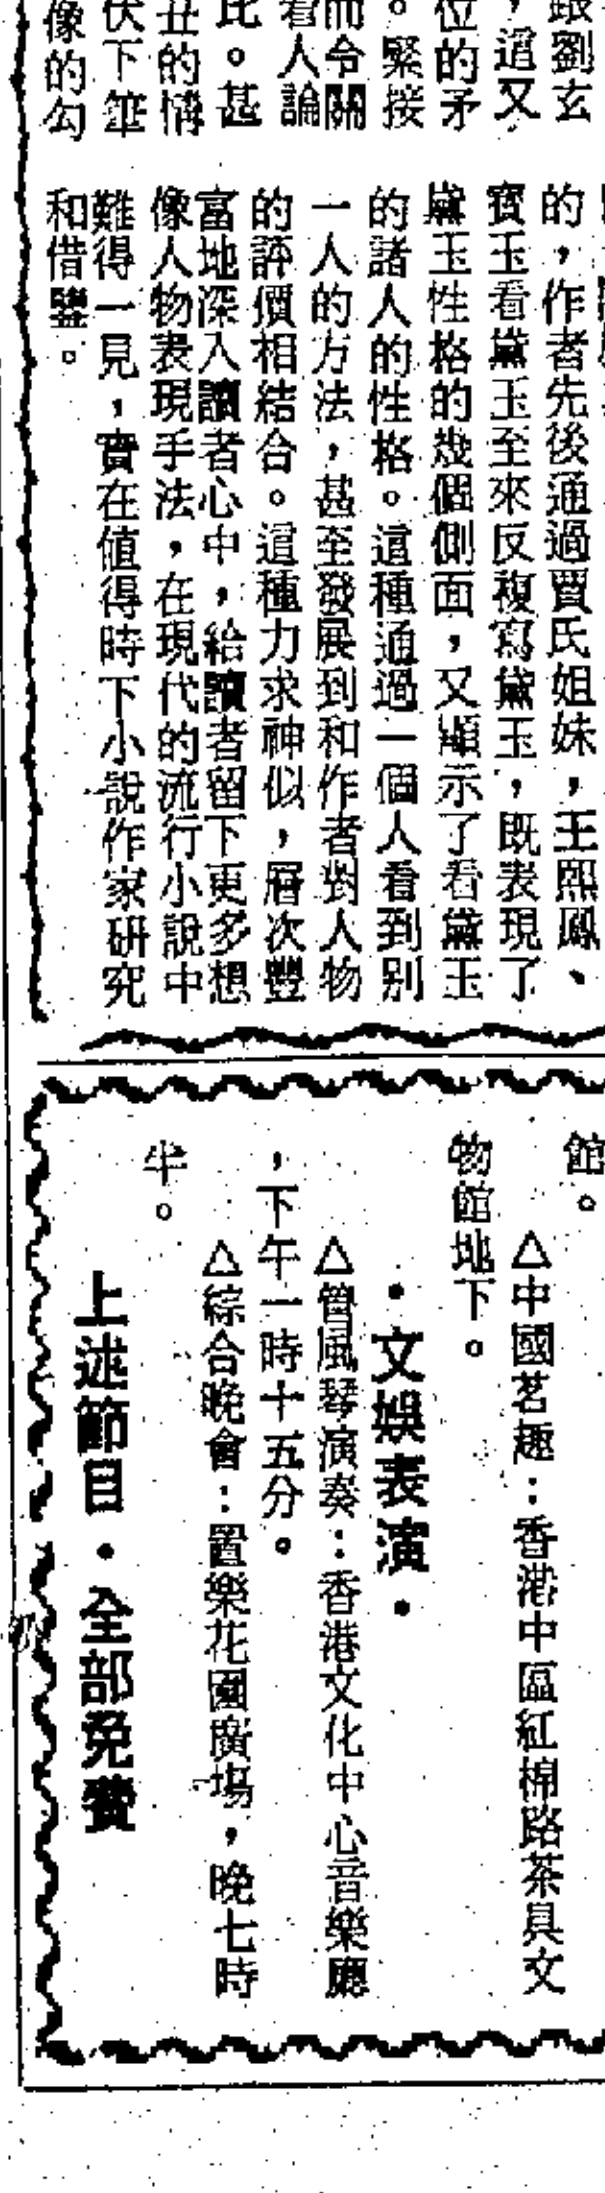 跟劉玄
，這又
位的矛
。緊接
而令關
看人論
比。甚
丑的情
伏下筆
像的勾
的，作者先後通過賈氏姐妹，王熙鳳、
寶玉看黛玉至來反複寫黛玉，既表現了
黛玉性格的幾個側面，又顯示了看黛玉
的諸人的性格。這種通過一個人看到別
一人的方法，甚至發展到和作者對人物
的評價相結合。這種力求神似，層次豐
富地深入讀者心中，給讀者留下更多想
像人物表現手法，在現代的流行小說中
難得一見，實在值得時下小說作家研究
和借鑒。
館。
△中國茗趣：香港中區紅棉路茶具文
物館地下。
·文娛表演·
△管風琴演奏：香港文化中心音樂廳
，下午一時十五分。
△綜合晚會：置樂花園廣場，晚七時
半。
上述節目·全部免費